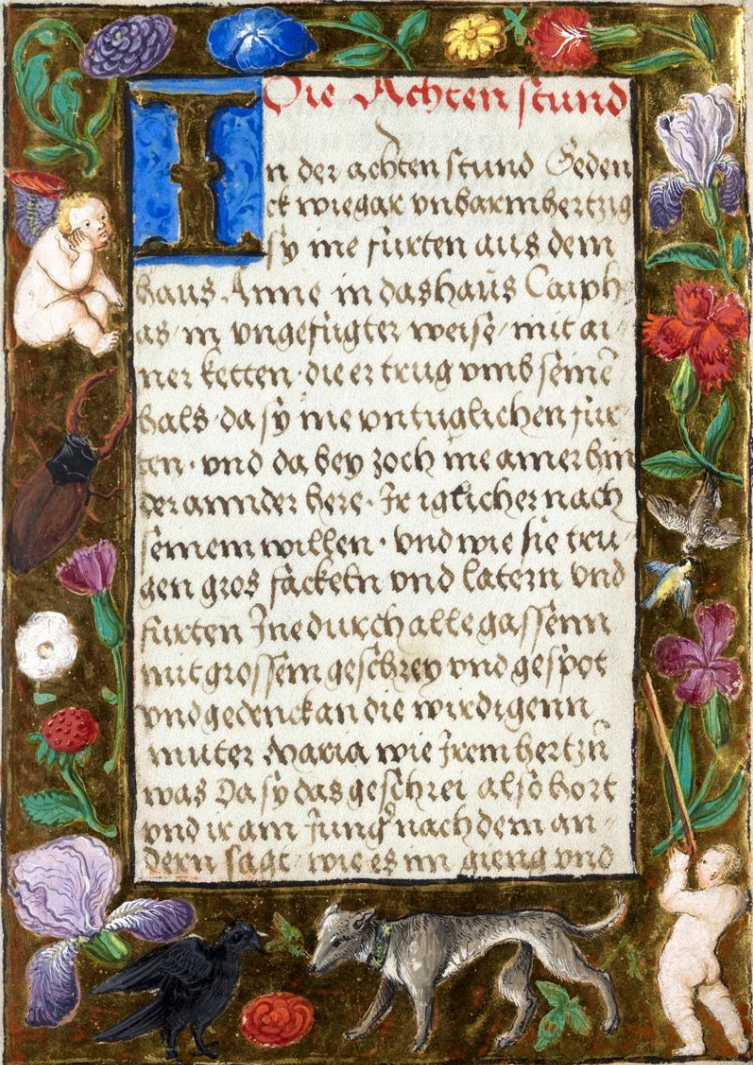 Die Achten stund
In der achten stund Geden
ck wiegar vnbarmhertzig
sy ine fürten aus dem
haus Anne in das haüs Caiph
as in vngefügter weise mit ai
ner ketten die er trug vmb seinē
hals da sy ine vntuglichen für
ten vnd da bey zoch ine ainer hin
der annder here Ir iglicher nach
seinem willen vnd wie sie tru
gen gros fackeln vnd latern vnd
fürten Ine durch alle gassenn
mit grossem geschrey vnd gespot
vnd gedenck an die wirdigenn
muter Maria wie Irem hertzn
was Da sy das geschrei also hort
vnd ir ain Jung nach dem an
dern sagt wie es im gieng vnd